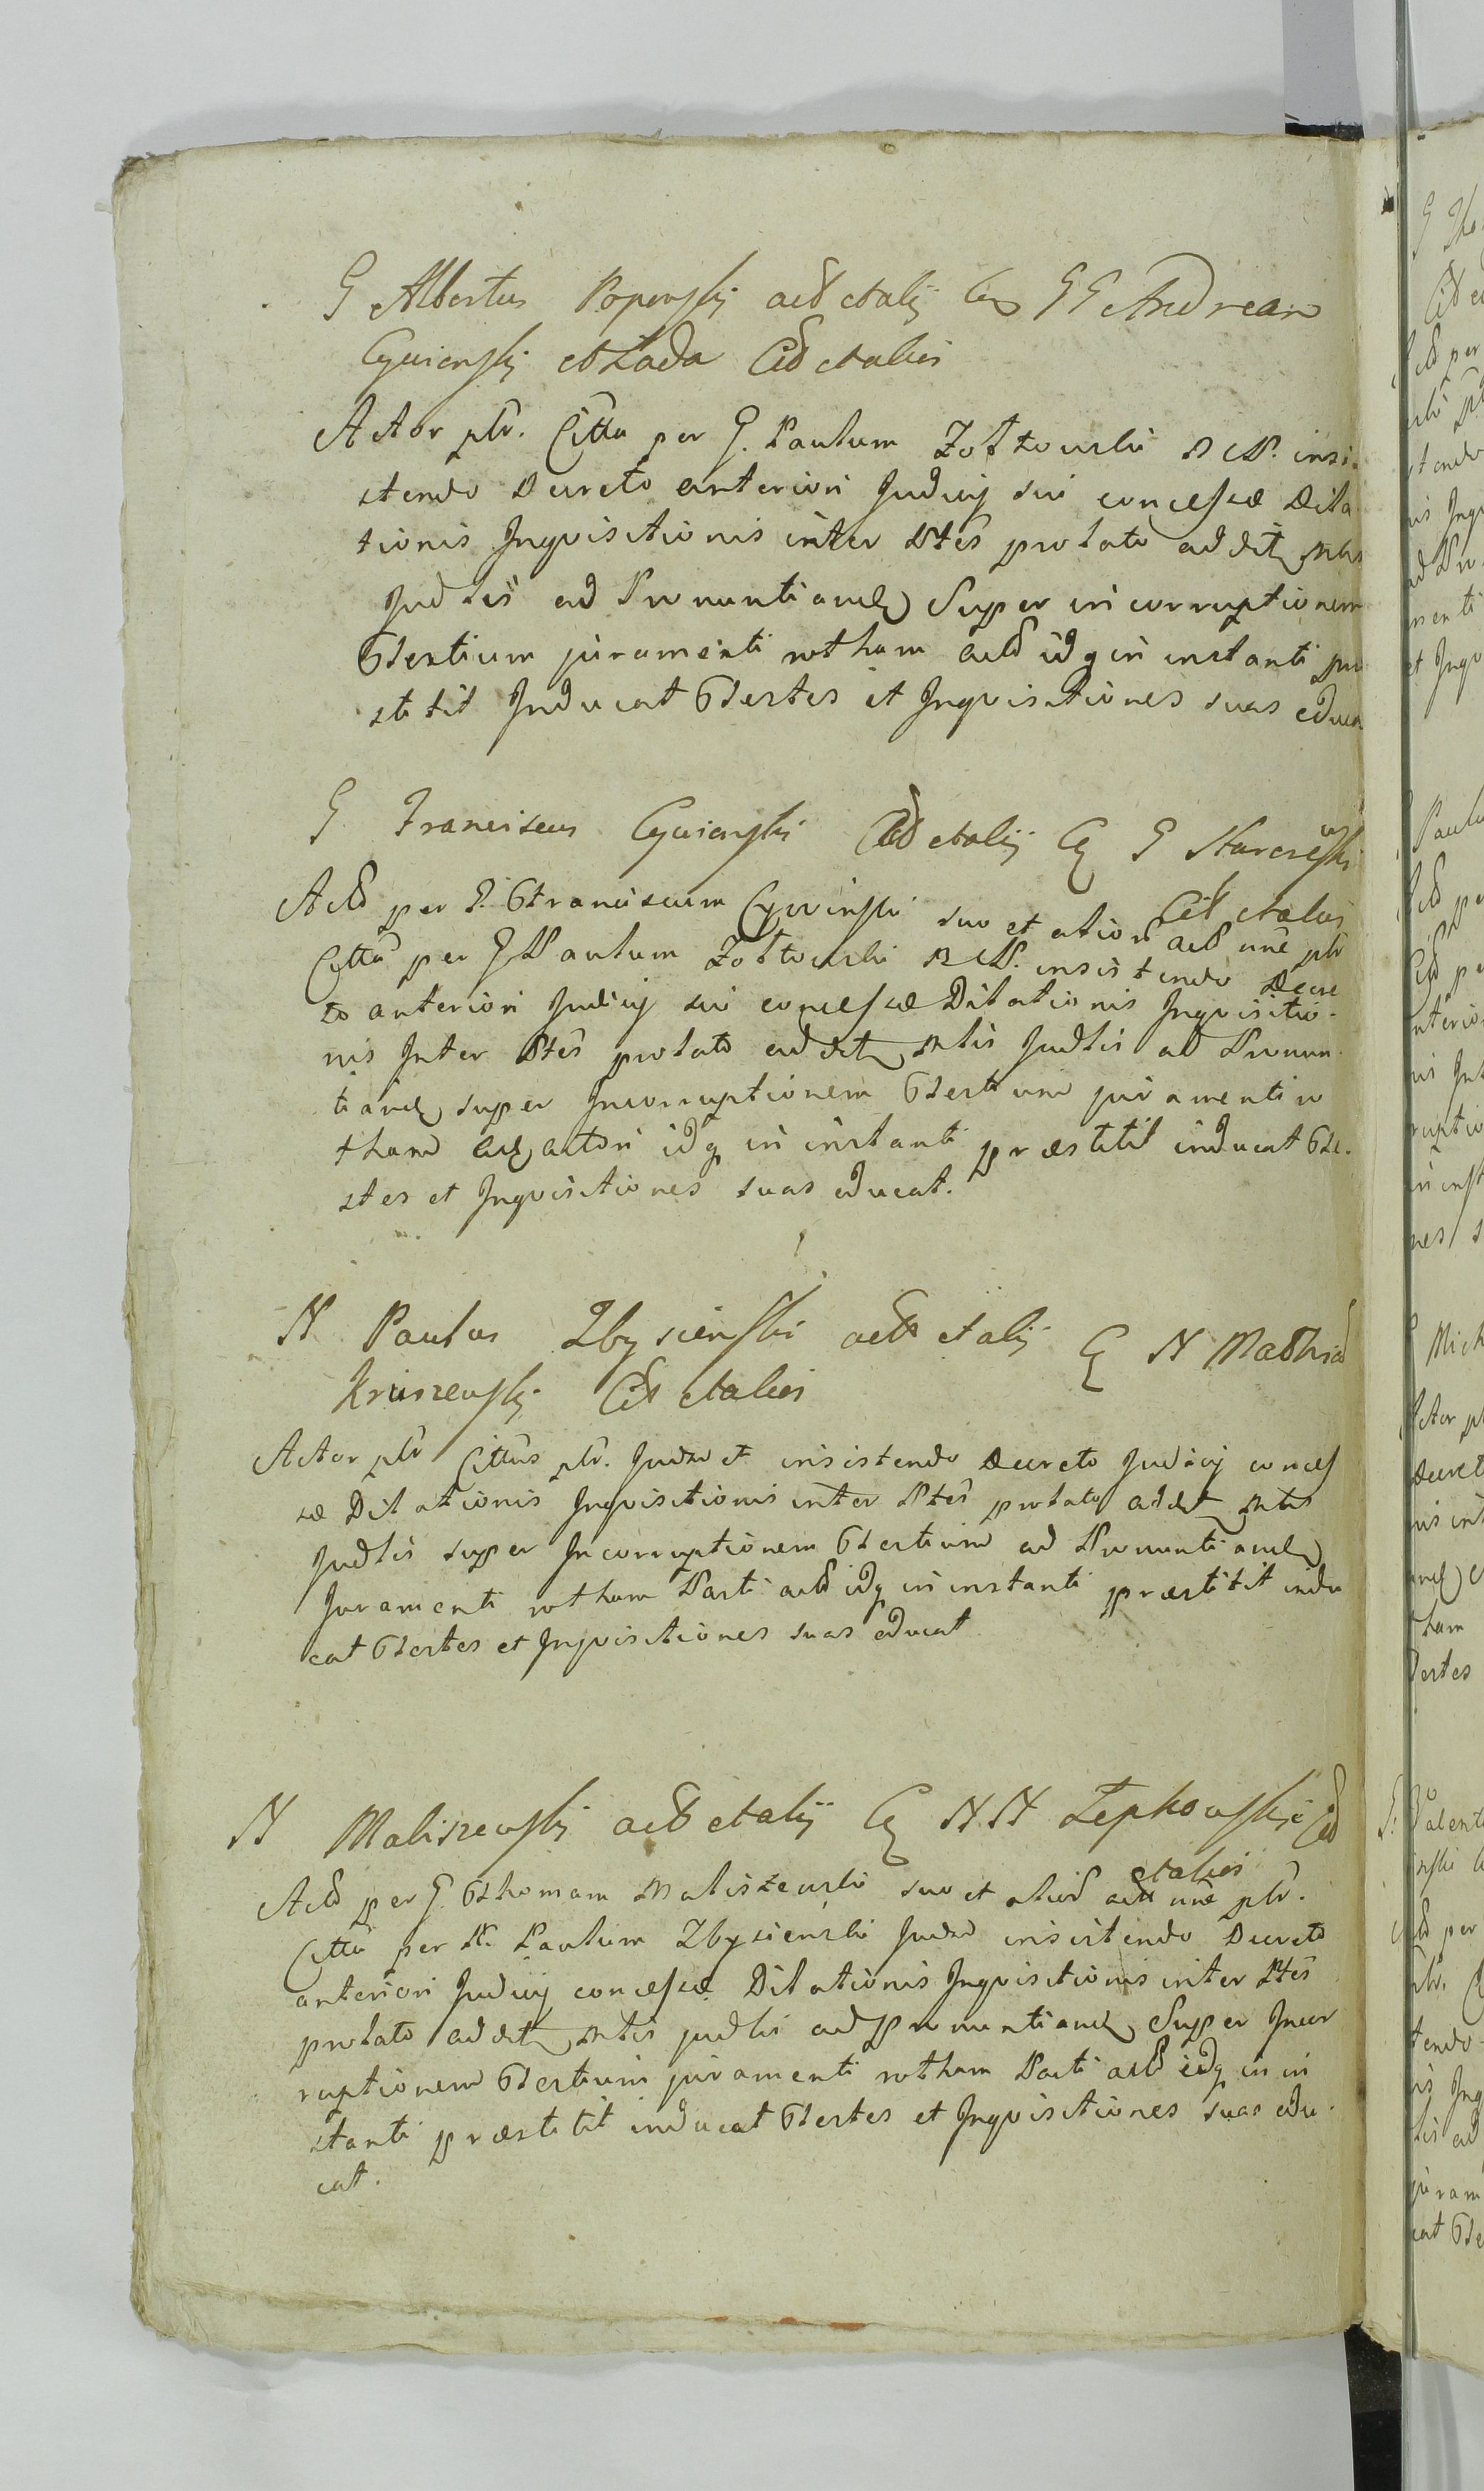 G Albertus Popowski act et alij Cq GG Andream
Cywiński et Łada Cit et alios
Actor plr. Citta per G. Paulum Zołtowski M N. insi-
stendo Decreto anteriori Judicij sui concessæ Dila
tionis Inqvisitionis inter Ptes prolato addit Mtis
Judlis ad Pronuntiand Super incorruptionem
Testium juramenti rotham actd idq in instanti præ
stitit Inducat Testes et Inqvisitiones suas educa
G Franciscus Cywiński Act et alij Cq G Skarczewski
Cit et alios
Actd per G. Franciscum Cywinski suo et alior act nne plr
Citta per G Paulum Zołtowski M N. insistendo Decre
to anteriori Judicij sui concessæ Dilationis Inqvisitio-
nis Inter Ptes prolato addit Mtis Judlis ad Pronun
tiand super Incorruptionem Testium juramenti ro
tham actori idq in instanti præstitit inducat Te-
stes et Inqvisitiones suas educat.
N Paulus Zbysieński act et alij Cq N Mathia
Kruszewski Cit et alios
Actor plr Cittus plr. Judm et insistendo Decreto Judicij conces
sæ Dilationis Inqvisitionis inter Ptes prolato addit Mtis
Judlis super Incorruptionem Testium ad Pronuntiand
Juramenti rotham Parti actd idq in instanti præstitit indu
cat Testes et Inqvisitiones suas educat
N Maliszewski act et alij Cq N.N Zepkowskie Cit
et alios
Actd per G. Thomam Maliszewski suo et aliod act nne plr.
Citta per N. Paulum Zbysienski Judm insistendo Decreto
anteriori Judicij concessæ Dilationis Inqvisitionis inter Ptes
prolato addit Mtis judlis ad pronuntiand Super Incor
ruptionem Testium juramenti rotham Parti actd idq in in
stanti præstitit inducat Testes et Inqvisitiones suas edu-
cat.